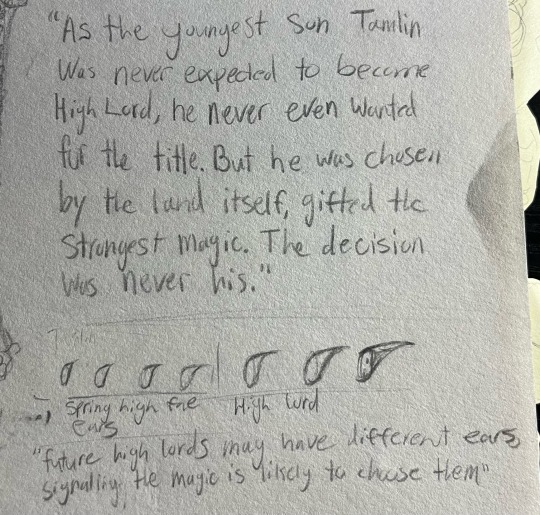 "As the youngest Son Tamlin
Was never expected to become
High Lord, he never even wanted
for the title. But he was chosen
by the land itself, gifted the
Strongest magic. The decision
was never his."
Spring high fae
ears
High lord
"future high lords may have different ears
signaling the magic is likely to choose them"